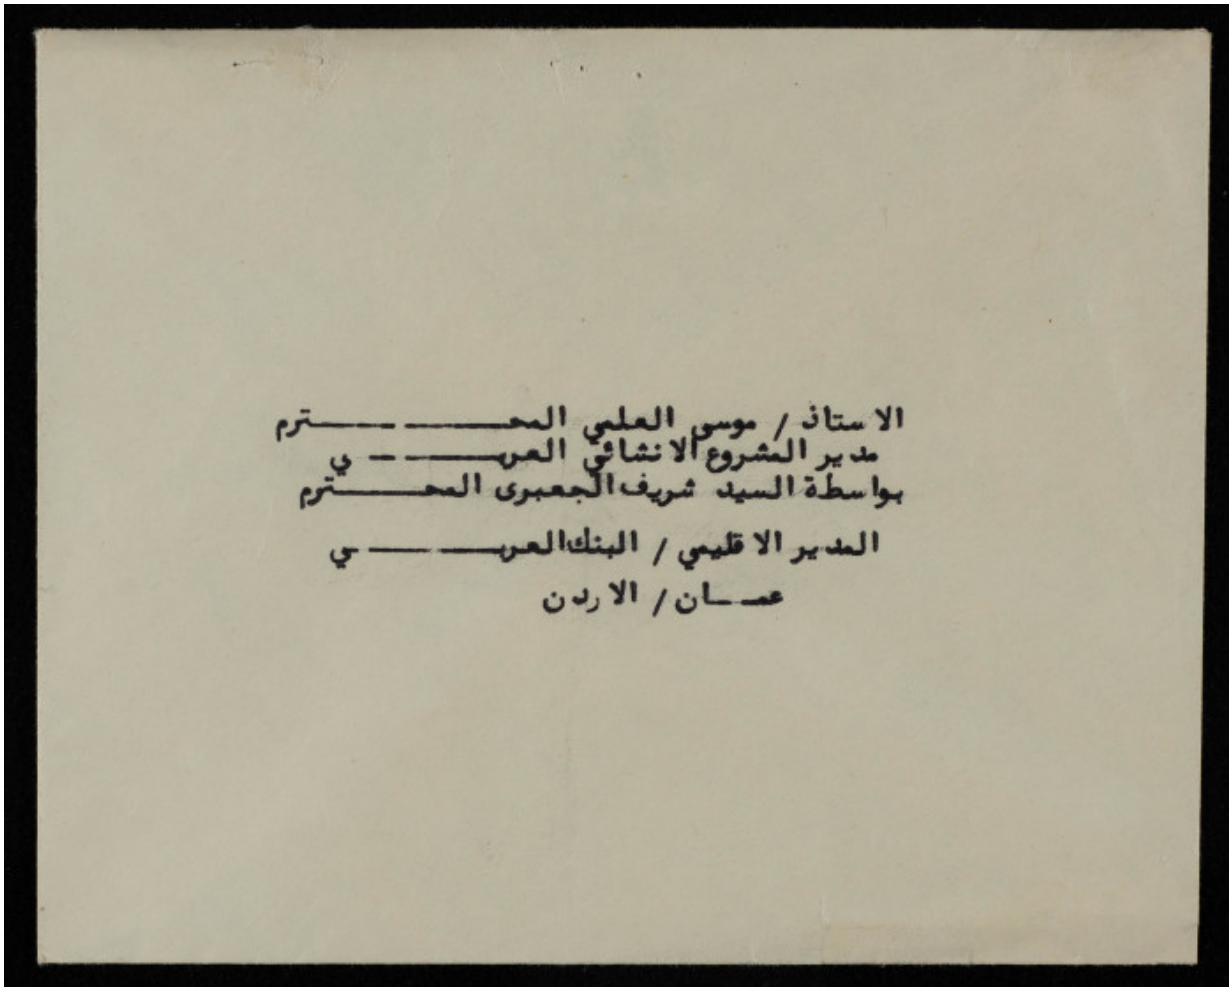 الاستاذ / موسى العلمي المحـــــترم
مدير المشروع الانشائي العربـــــي
بواسطة السيد شريف الجعبرى المحـــــترم
المدير الاقليمي / البنك العربـــــي
عمـــان / الاردن